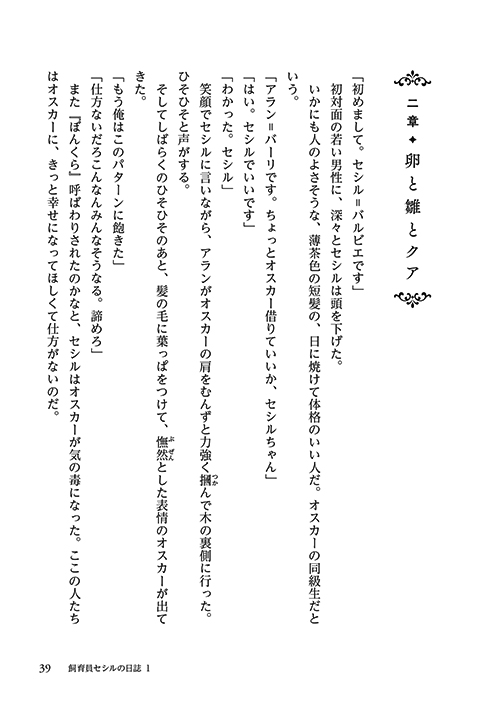 二章✦卵と雛とクア
「初めまして。セシル＝バルビエです」
初対面の若い男性に、深々とセシルは頭を下げた。
いかにも人のよさそうな、薄茶色の短髪の、日に焼けて体格のいい人だ。オスカーの同級生だと
いう。
「アラン＝バーリです。ちょっとオスカー借りていいか、セシルちゃん」
「はい。セシルでいいです」
「わかった。セシル」
笑顔でセシルに言いながら、アランがオスカーの肩をむんずと力強く摑んで木の裏側に行った。
つか
ひそひそと声がする。
そしてしばらくのひそひそのあと、髪の毛に葉っぱをつけて、憮然とした表情のオスカーが出て
ぶぜん
きた。
「もう俺はこのパターンに飽きた」
「仕方ないだろこんなんみんなそうなる。諦めろ」
また『ぼんくら』呼ばわりされたのかなと、セシルはオスカーが気の毒になった。ここの人たち
はオスカーに、きっと幸せになってほしくて仕方がないのだ。
39 飼育員セシルの日誌 1